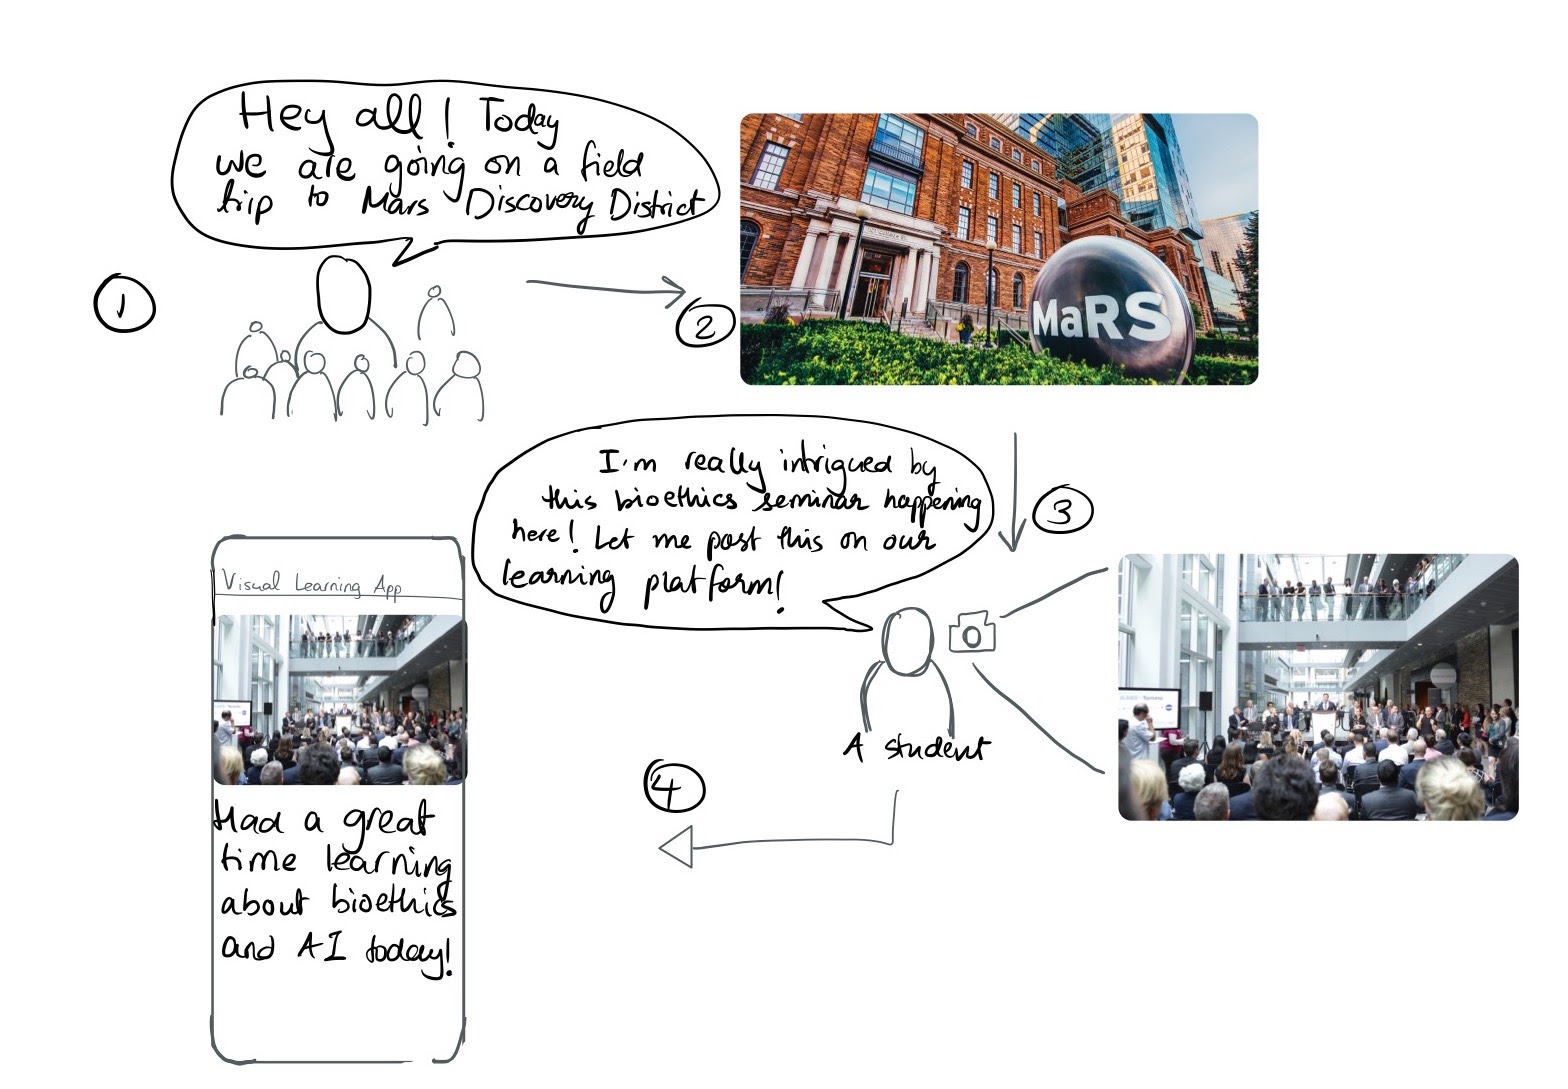 Hey all! Today
we are going on a field
trip to Mars Discovery District
1
2
MaRS
I'm really intrigued by
this bioethics seminar happening
here! Let me post this on our
learning platform!
3
A student
4
Visual Learning App
Had a great
time learning
about bioethics
and AI today!